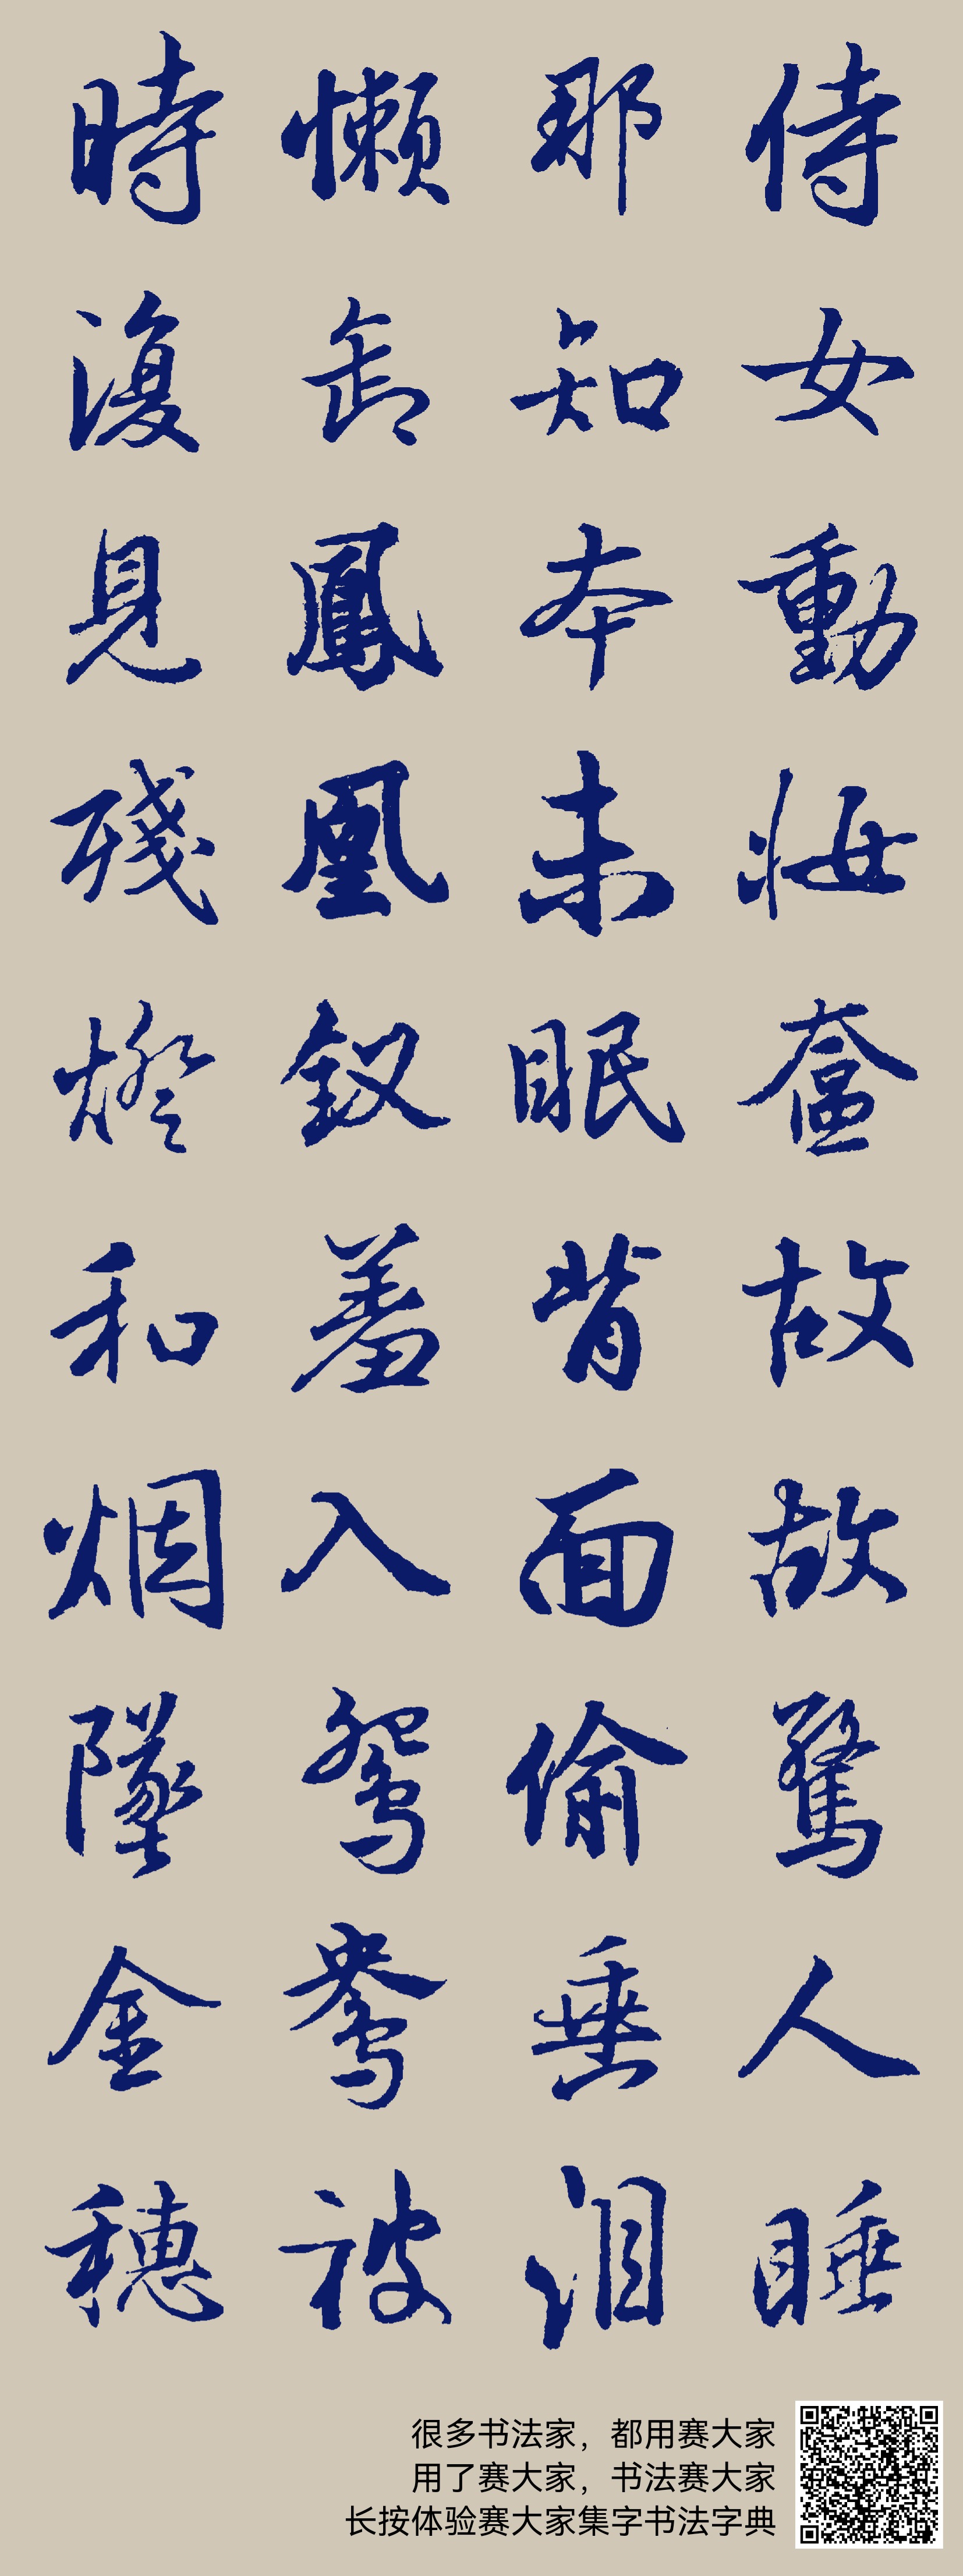 侍女動妝奩故故驚人睡
那知本未眠背面偷垂泪
懶卸鳳凰釵羞入鴛鴦被
時復見殘燈和烟墜金穗
很多书法家，都用赛大家
用了赛大家，书法赛大家
长按体验赛大家集字书法字典